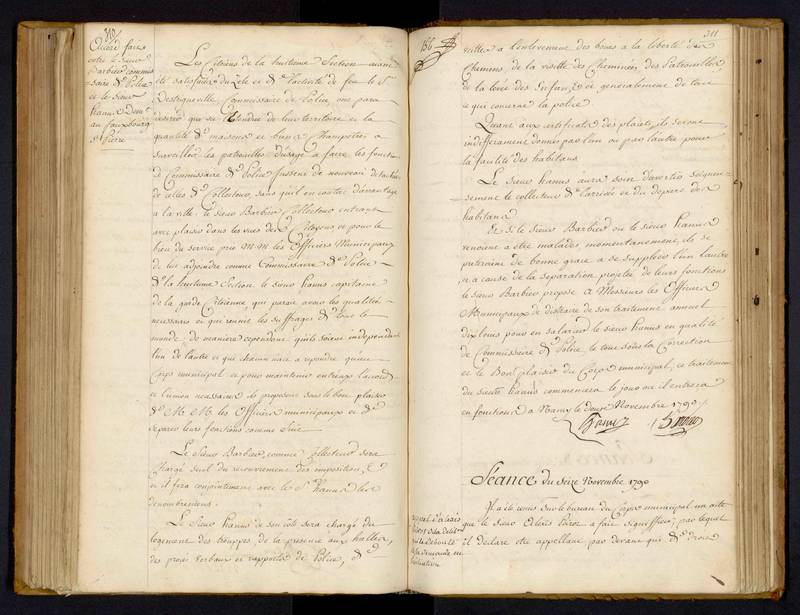 310
Accord fait
entre le sieur
Barbier commis-
saire de Police
et le sieur
hanus demt
au fauxbourg
St Pierre
Les Citoiens de la huitieme Section aiant
été satisfaits du zele et de l'activité de feu le Sr
Commissaire de Police, ont
desiré que vu l'étendue de leur territoire et la
quantité de maisons et bans Champêtres a
surveiller les patrouilles d'usage a faire les fonctions
de Commissaire de Police fussent de nouveau detachées
de celles de Collecteur, sans qu'il en coutat davantage
a la ville. le sieur Barbier Collecteur entrant
avec plaisir dans les vües des Citoyens et pour le
bien du service prie MM les Officiers Municipaux
de lui adjoindre comme Commissaire de Police
de la huitieme Section le sieur hanus capitaine
de la garde Citoienne, qui parait avoir les qualités
necessaires et qui reunit les suffrages de tout le
monde, de maniere cependant qu'ils soient independans
l'un de l'autre et que chacun n'ait a repondre qu'au
Corps municipal et pour maintenir entr'eux l'accord
et l'union necessaires ils proposent sous le bon plaisir
de M M les Officiers municipaux et de
separer leurs fonctions comme suit
Le Sieur Barbier, comme Collecteur sera
chargé seul du recouvrement des imposition, &
et il fera conjointement avec le Sr hanus les
denombremens.
Le Sieur hanus de son côté sera chargé du
logement des trouppes, de la presence aux halles,
des procès verbaux et rapports de Police, de
156
311
veiller a l'enlevement des boues a la liberté des
Chemins, de la visitte des Cheminées, des Patrouilles
de la levée des Enfans, & generalement de tout
ce qui concerne la police
Quant aux certificats des plaids, ils seront
indifferament donnés par l'un ou par l'autre pour
la facilité des habitans
Le Sieur hanus aura soin d'avertir soigneu-
sement le collecteur de l'arrivée et du depart des
habitans
Et si le Sieur Barbier ou le sieur hanus
venoient a etre malades momentanement, ils se
preteroient de bonne grace a se suppleer l'un l'autre
et a cause de la separation projetée de leurs fonctions
le sieur Barbier propose a Messieurs les Officiers
Municipaux de distraire de son traitement annuel
dix louis pour en salarier le sieur hanus en qualité
de Commissaire de Police, le tout sous la Correction
et le Bon plaisir du Corps municipal, ce traitement
du sieur hanus commencera le jour ou il entrera
en fonction a Nancy le Novembre 1790
Séance du Seize Novembre 1790
Il a été remis sur le bureau du Corps municipal un acte
que le sieur Alexis a fait signiffier, par lequel
il declare etre appellant par devant qui de droit